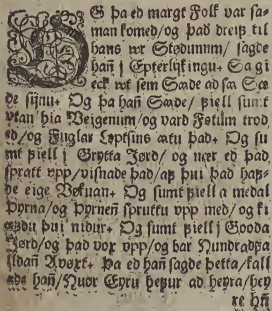 OG þa ed margt Folk var sa-
man komed/ og þad dreiß til
hans vr Stødunum/ sagde
hañ i Epterlijkingu. Sa gi
eck vt sem Sæde ad sa Sæ
de sijnu. Og þa hañ Sæde/ fiell sumt
vtan hia Veigenum/ og vard Fotum trod
ed/ og Fuglar Loptsins ætu þad. Og su
mt fiell i Grytta Jørd/ og nær ed þad
spratt vpp/ visnade þad/ aþ þui þad haf-
de eige Vøkuan. Og sumt fiell a medal
Þyrna/ og Þyrneñ spruttu vpp med/ og ki
æfdu þui nidur. Og sumt fiell i Gooda
Jørd/ og þad vox vpp/ og bar Hundradfa
lldañ Avøxt. Þa ed hañ sagde þetta/ kall
ade hañ/ Huør Eyru hefur ad heyra/ hey
re hñ